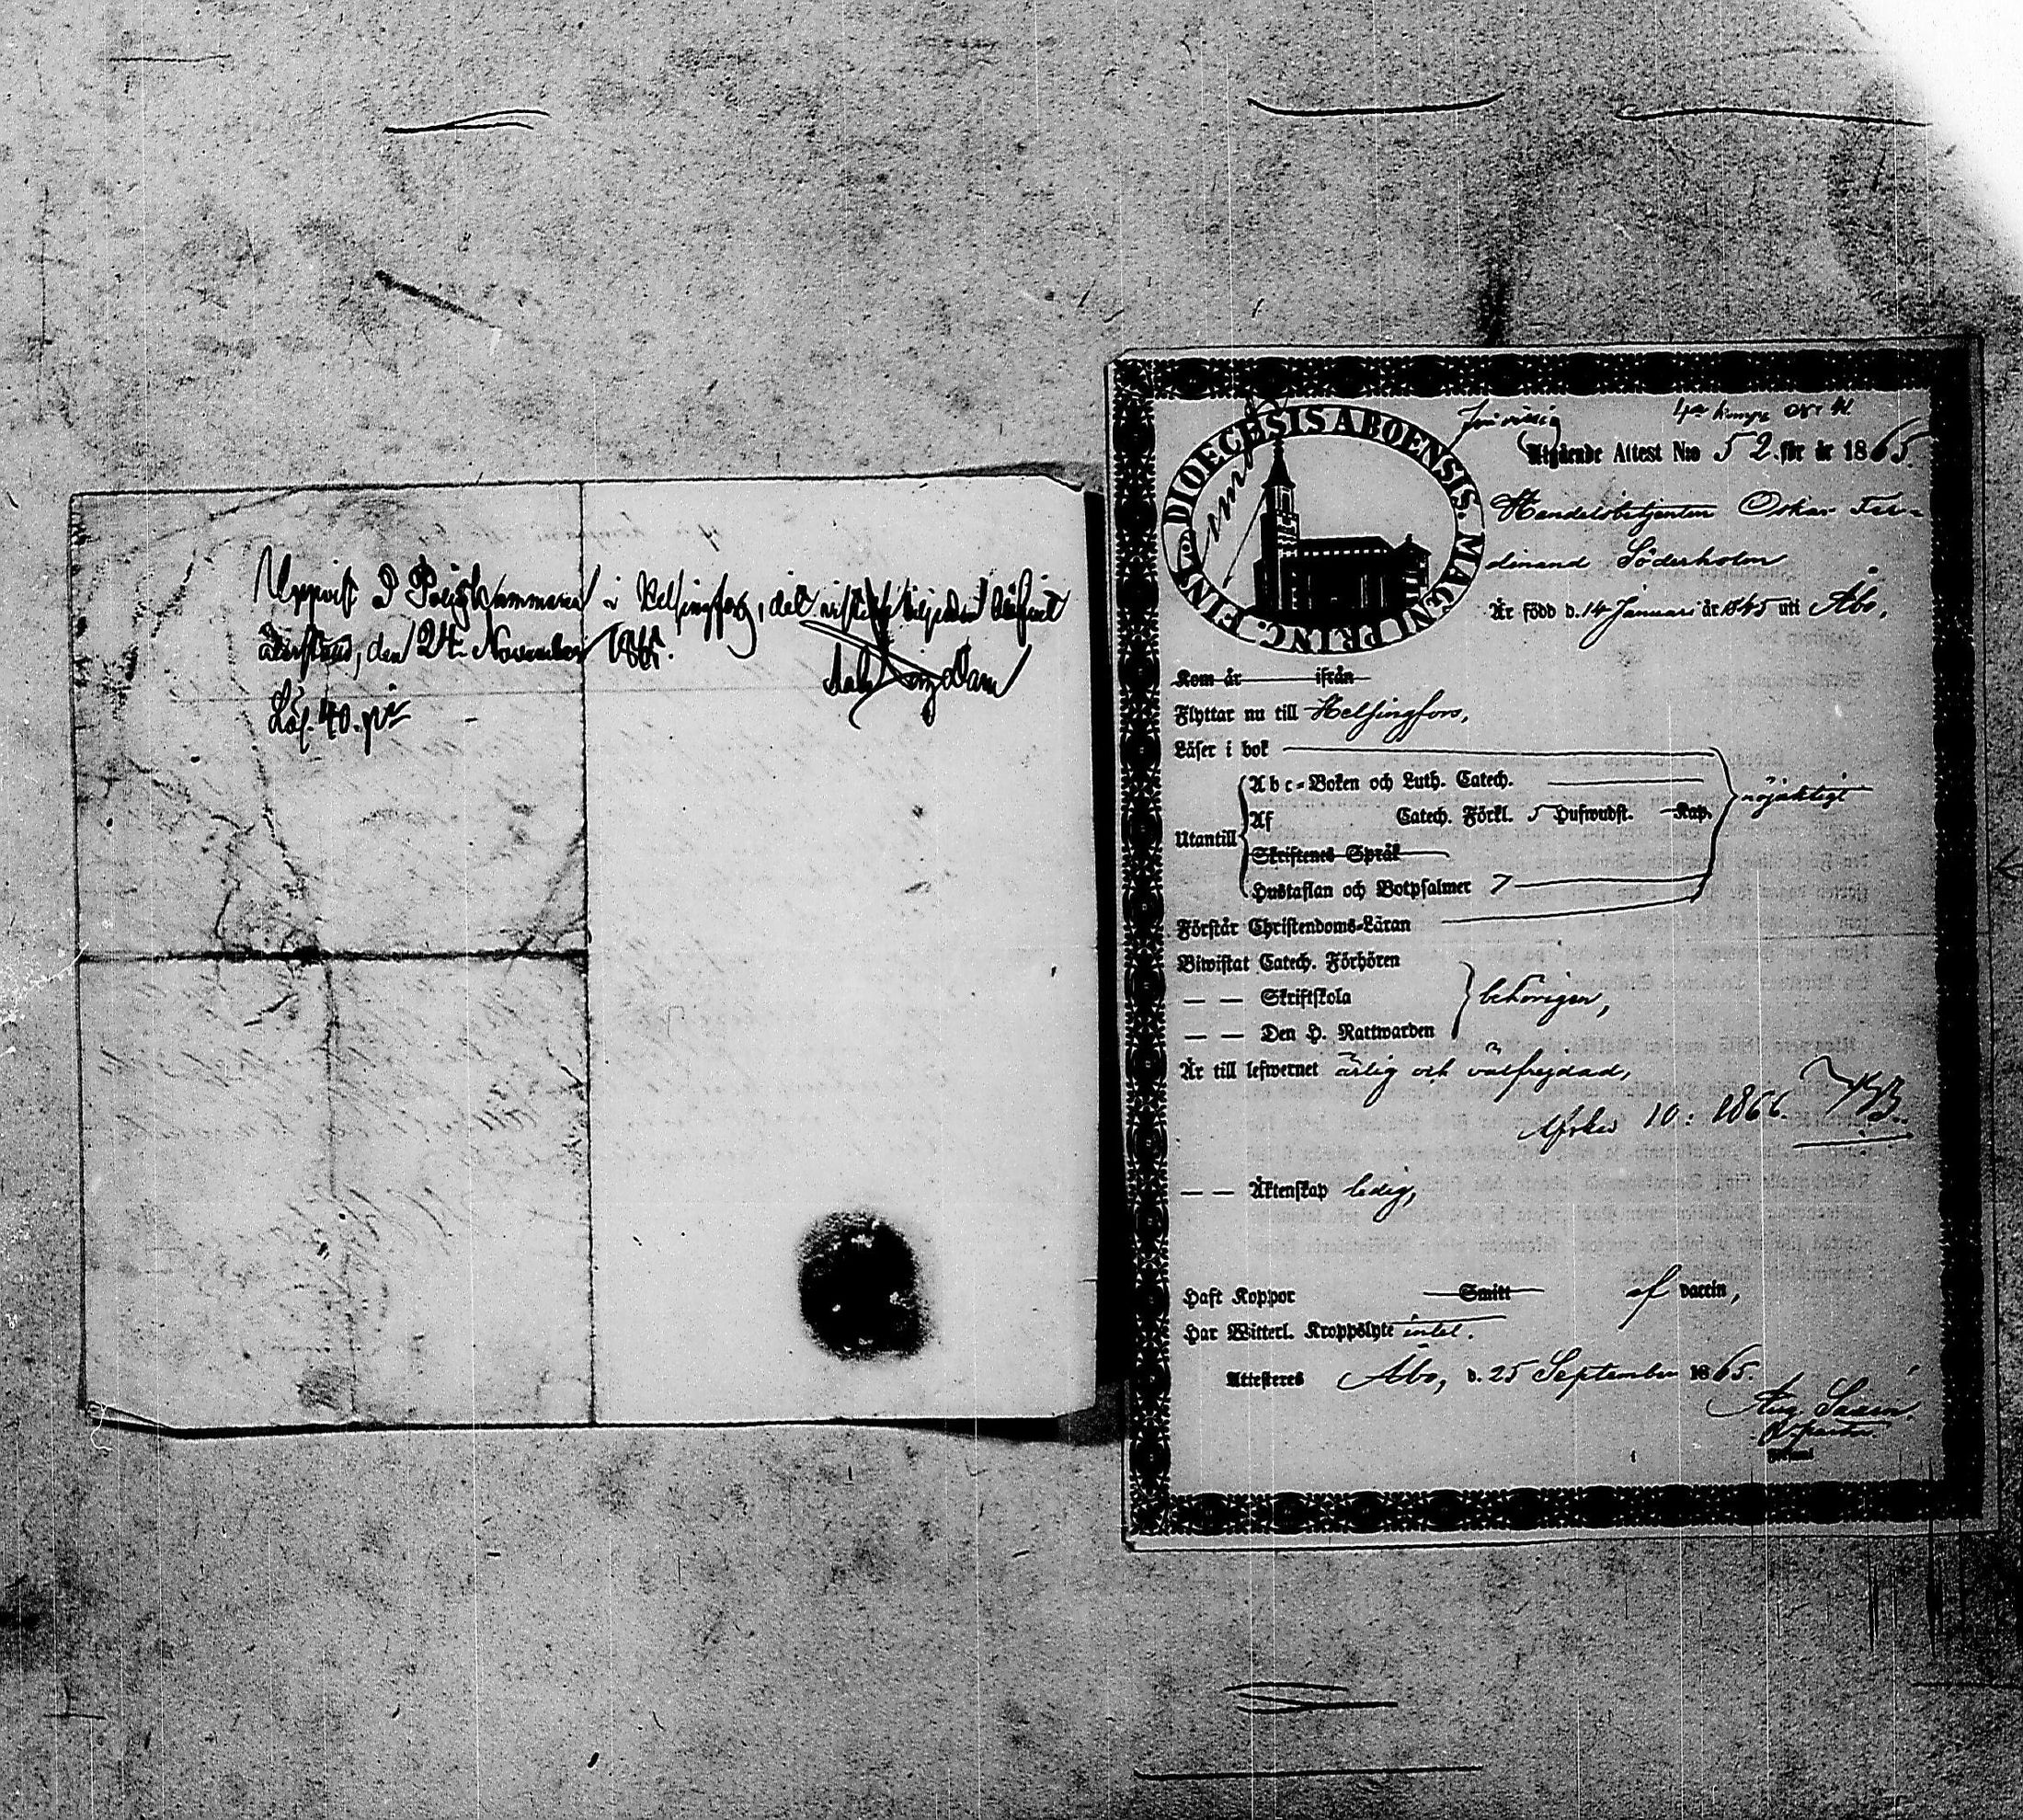 Uppvist i Poliskammaren i Helsingfors, det
återstod, den 24 November 1865.
Lös. 40. p:i
DIOECESIS ABOENSIS. MAGNI PRINC. FINL.
Utgående Attest N:o 52. för år 1865.
Handelsbetjenten Oskar Fer-
dinand Söderholm
Är född d. 14 Januari år 1845 uti Åbo,
Kom år ifrån
Flyttar nu till Helsingfors,
Läser i bok
Abc-Boken och Luth. Catech.
nöjaktigt
Utantill
Af Catech. Förkl. 5 Hufwudst. Kap.
Skriftenes Språk
Hustaflan och Botpsalmer 7
Förstår Christendoms-Läran
Biwistat Catech. Förhören
— — Skriftskola
behörigen,
— — Den H. Nattwarden
Är till lefwernet ärlig och välfrejdad,
10: 1866.
— — Äktenskap ledig,
Haft Koppor Smitt af vaccin,
Har Witterl. Kroppslyte intet.
Attesteres Åbo, d. 25 September 1865.
Aug.